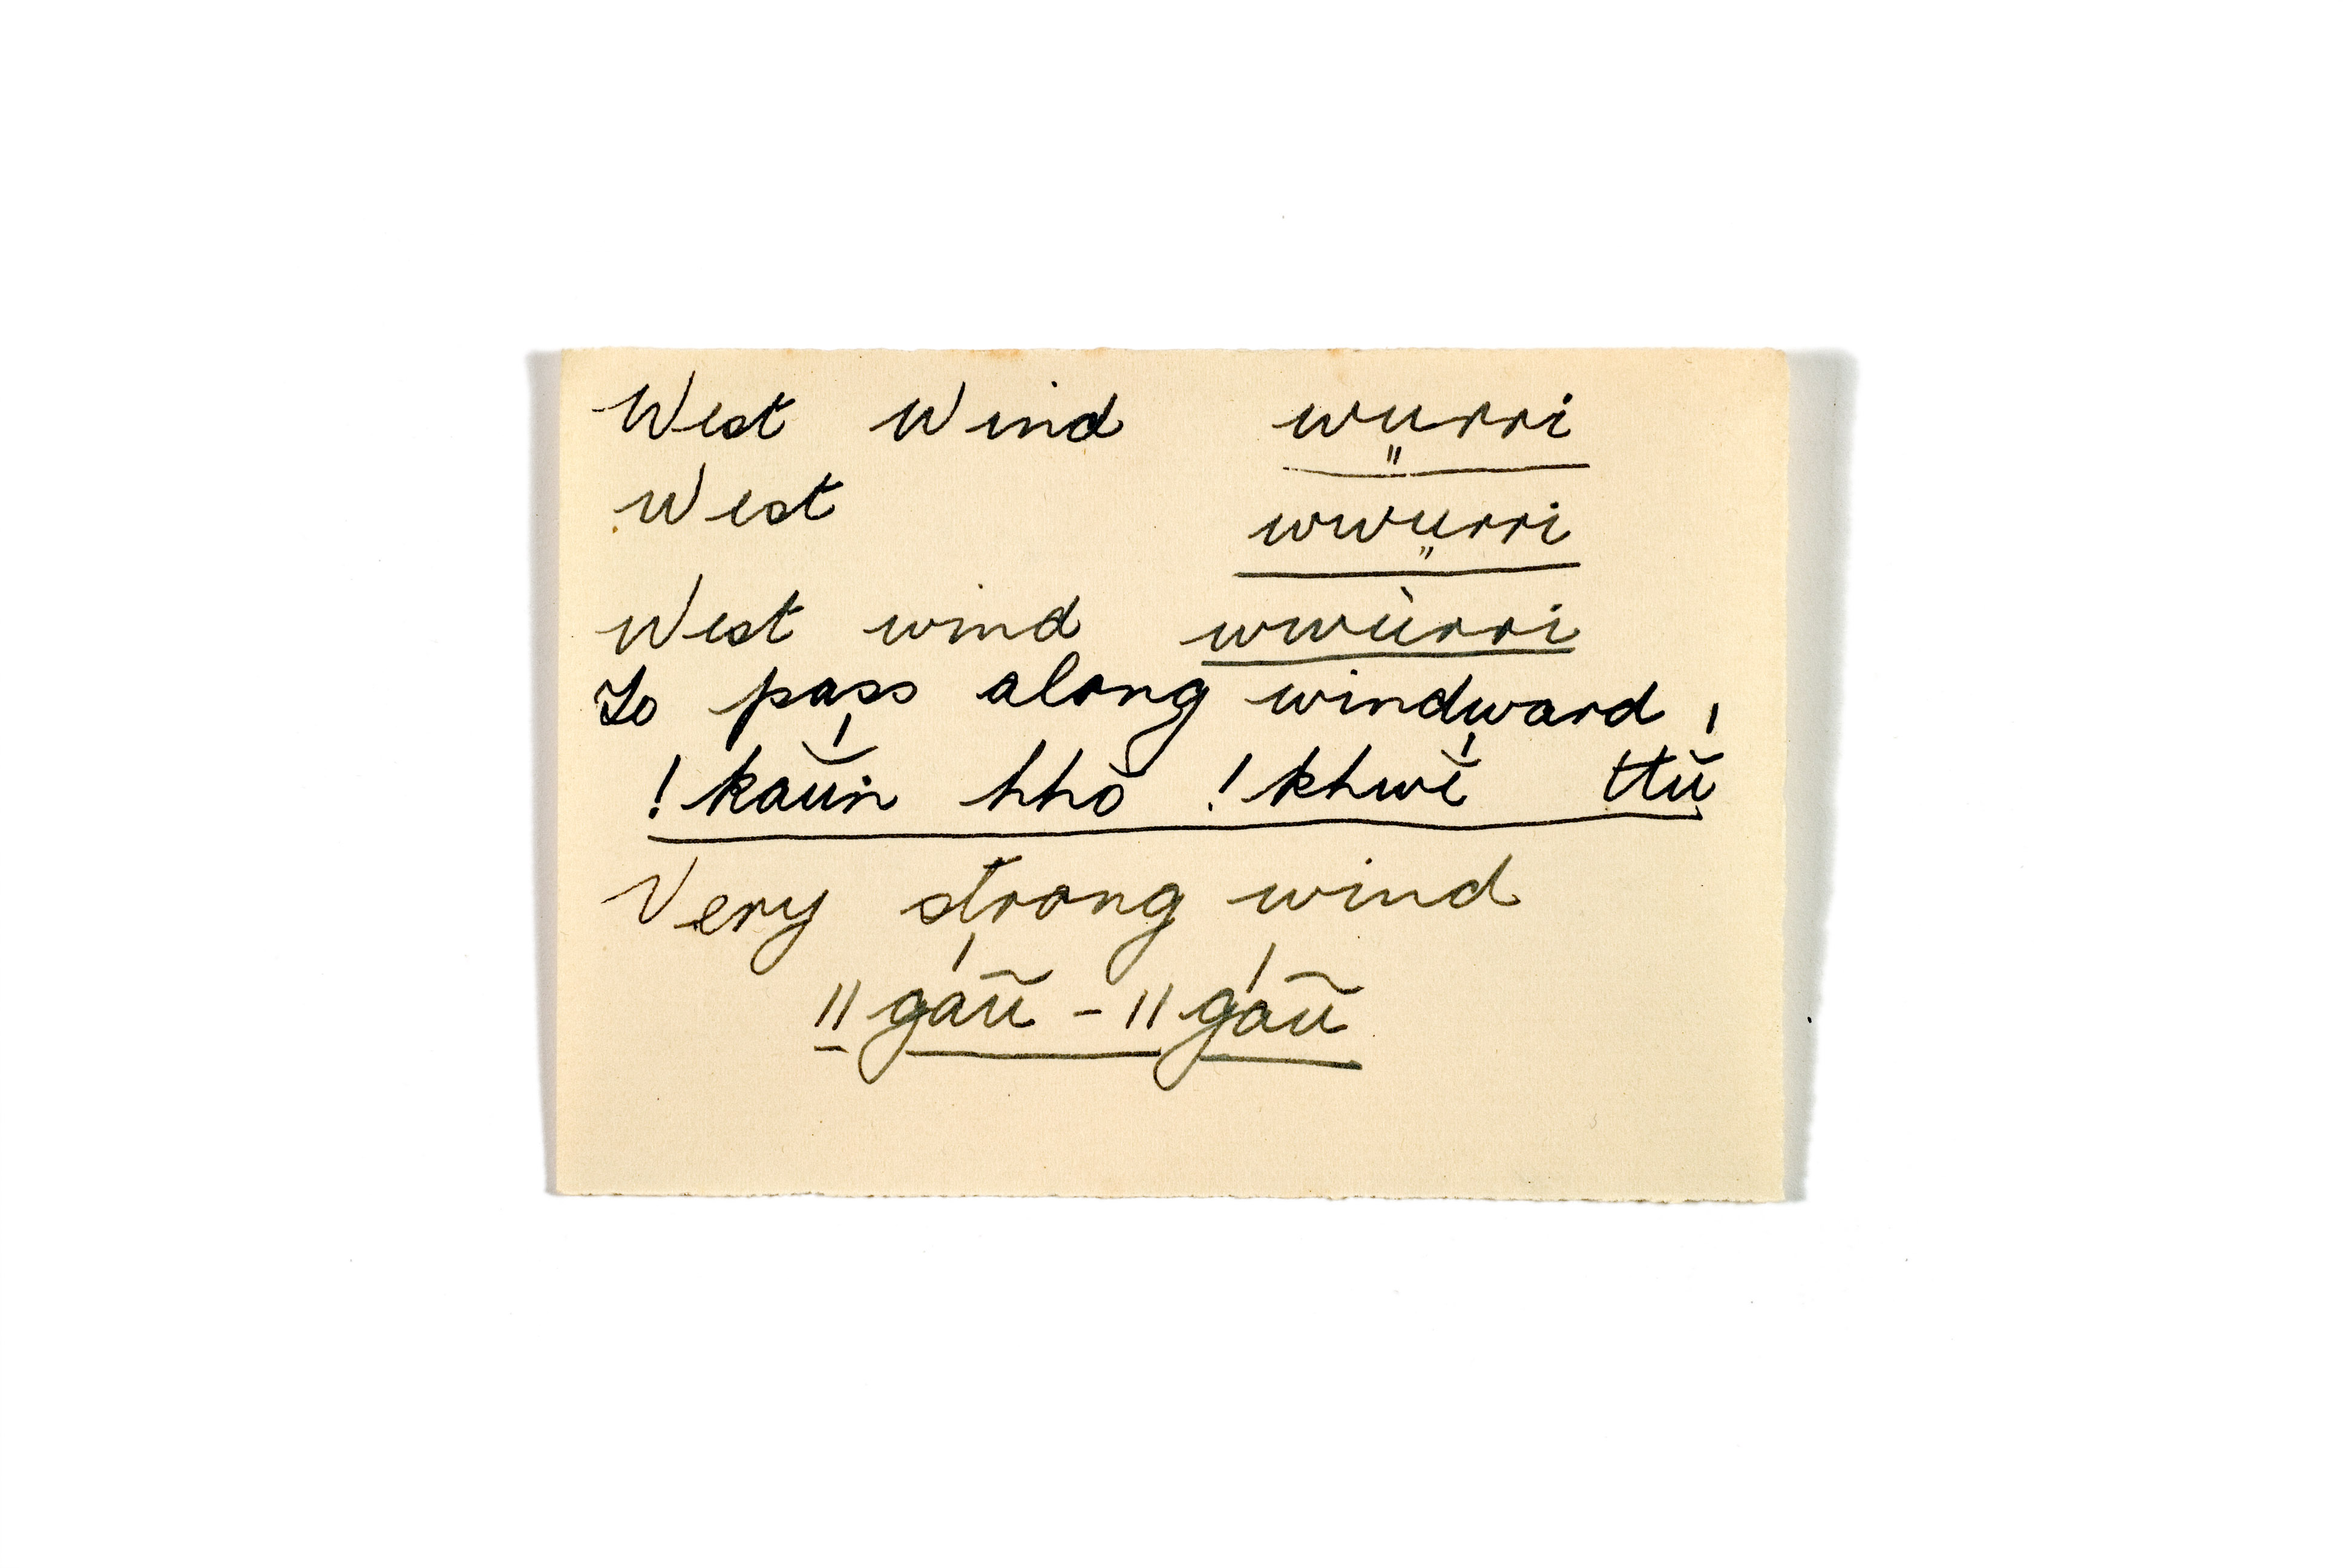 West Wind wu̎rri
West wwu̎rri
West wind wwùrri
To pass along windward,
!kaũin hhò !khwè ttŭ
Very strong wind
ǁgáũ - ǁgáũ